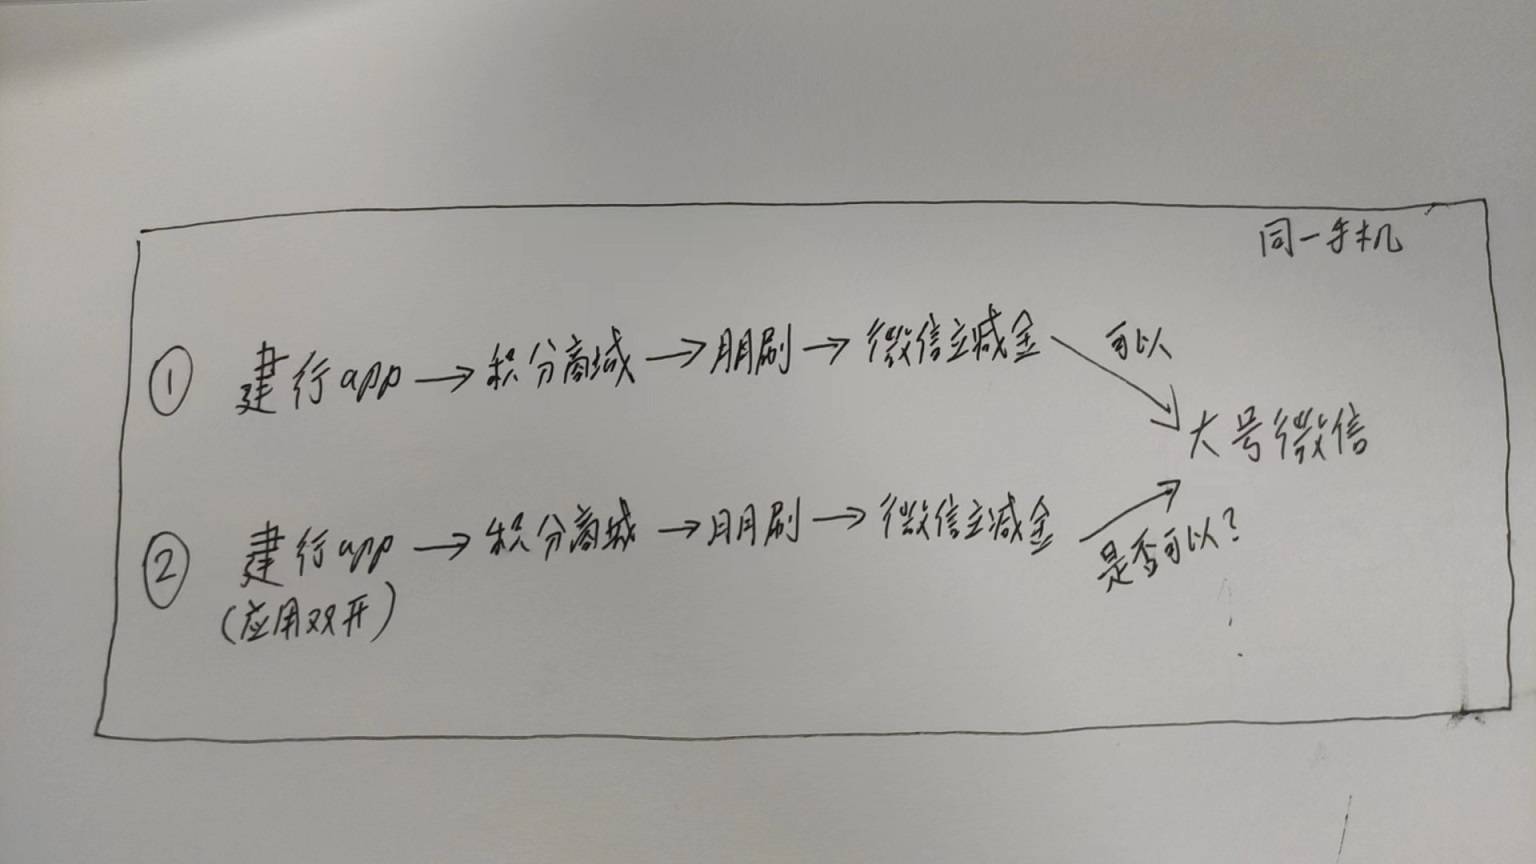 同一手机
① 建行app → 积分商城 → 朋刷 → 微信立减金 可以
大号微信
② 建行app → 积分商城 → 朋刷 → 微信立减金 是否可以?
(应用双开)